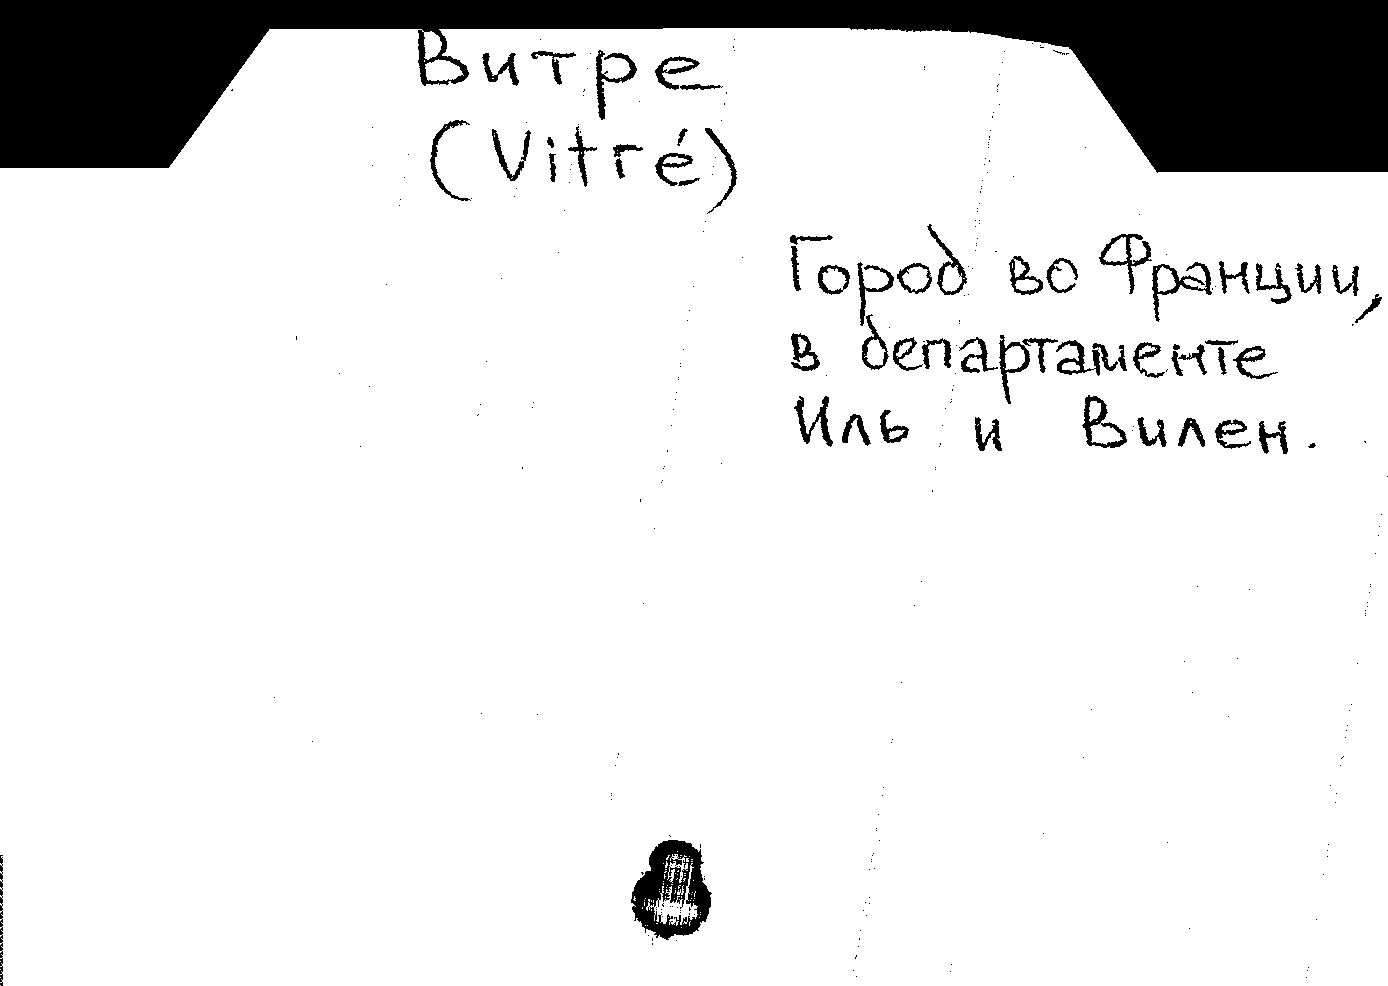 Витре
(Vitré)
Город во Франции,
в департаменте
Иль и Вилен.